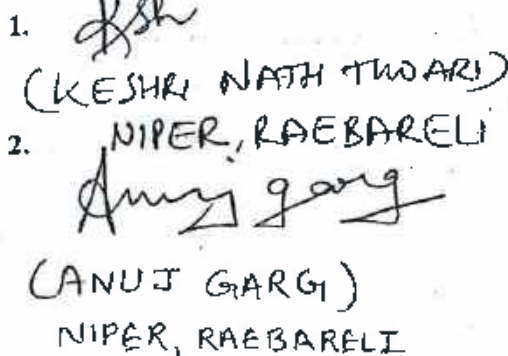 1.
(KESHRI NATH TIWARI)
NIPER, RAEBARELI
2.
Anuj garg
(ANUJ GARG)
NIPER, RAEBARELI